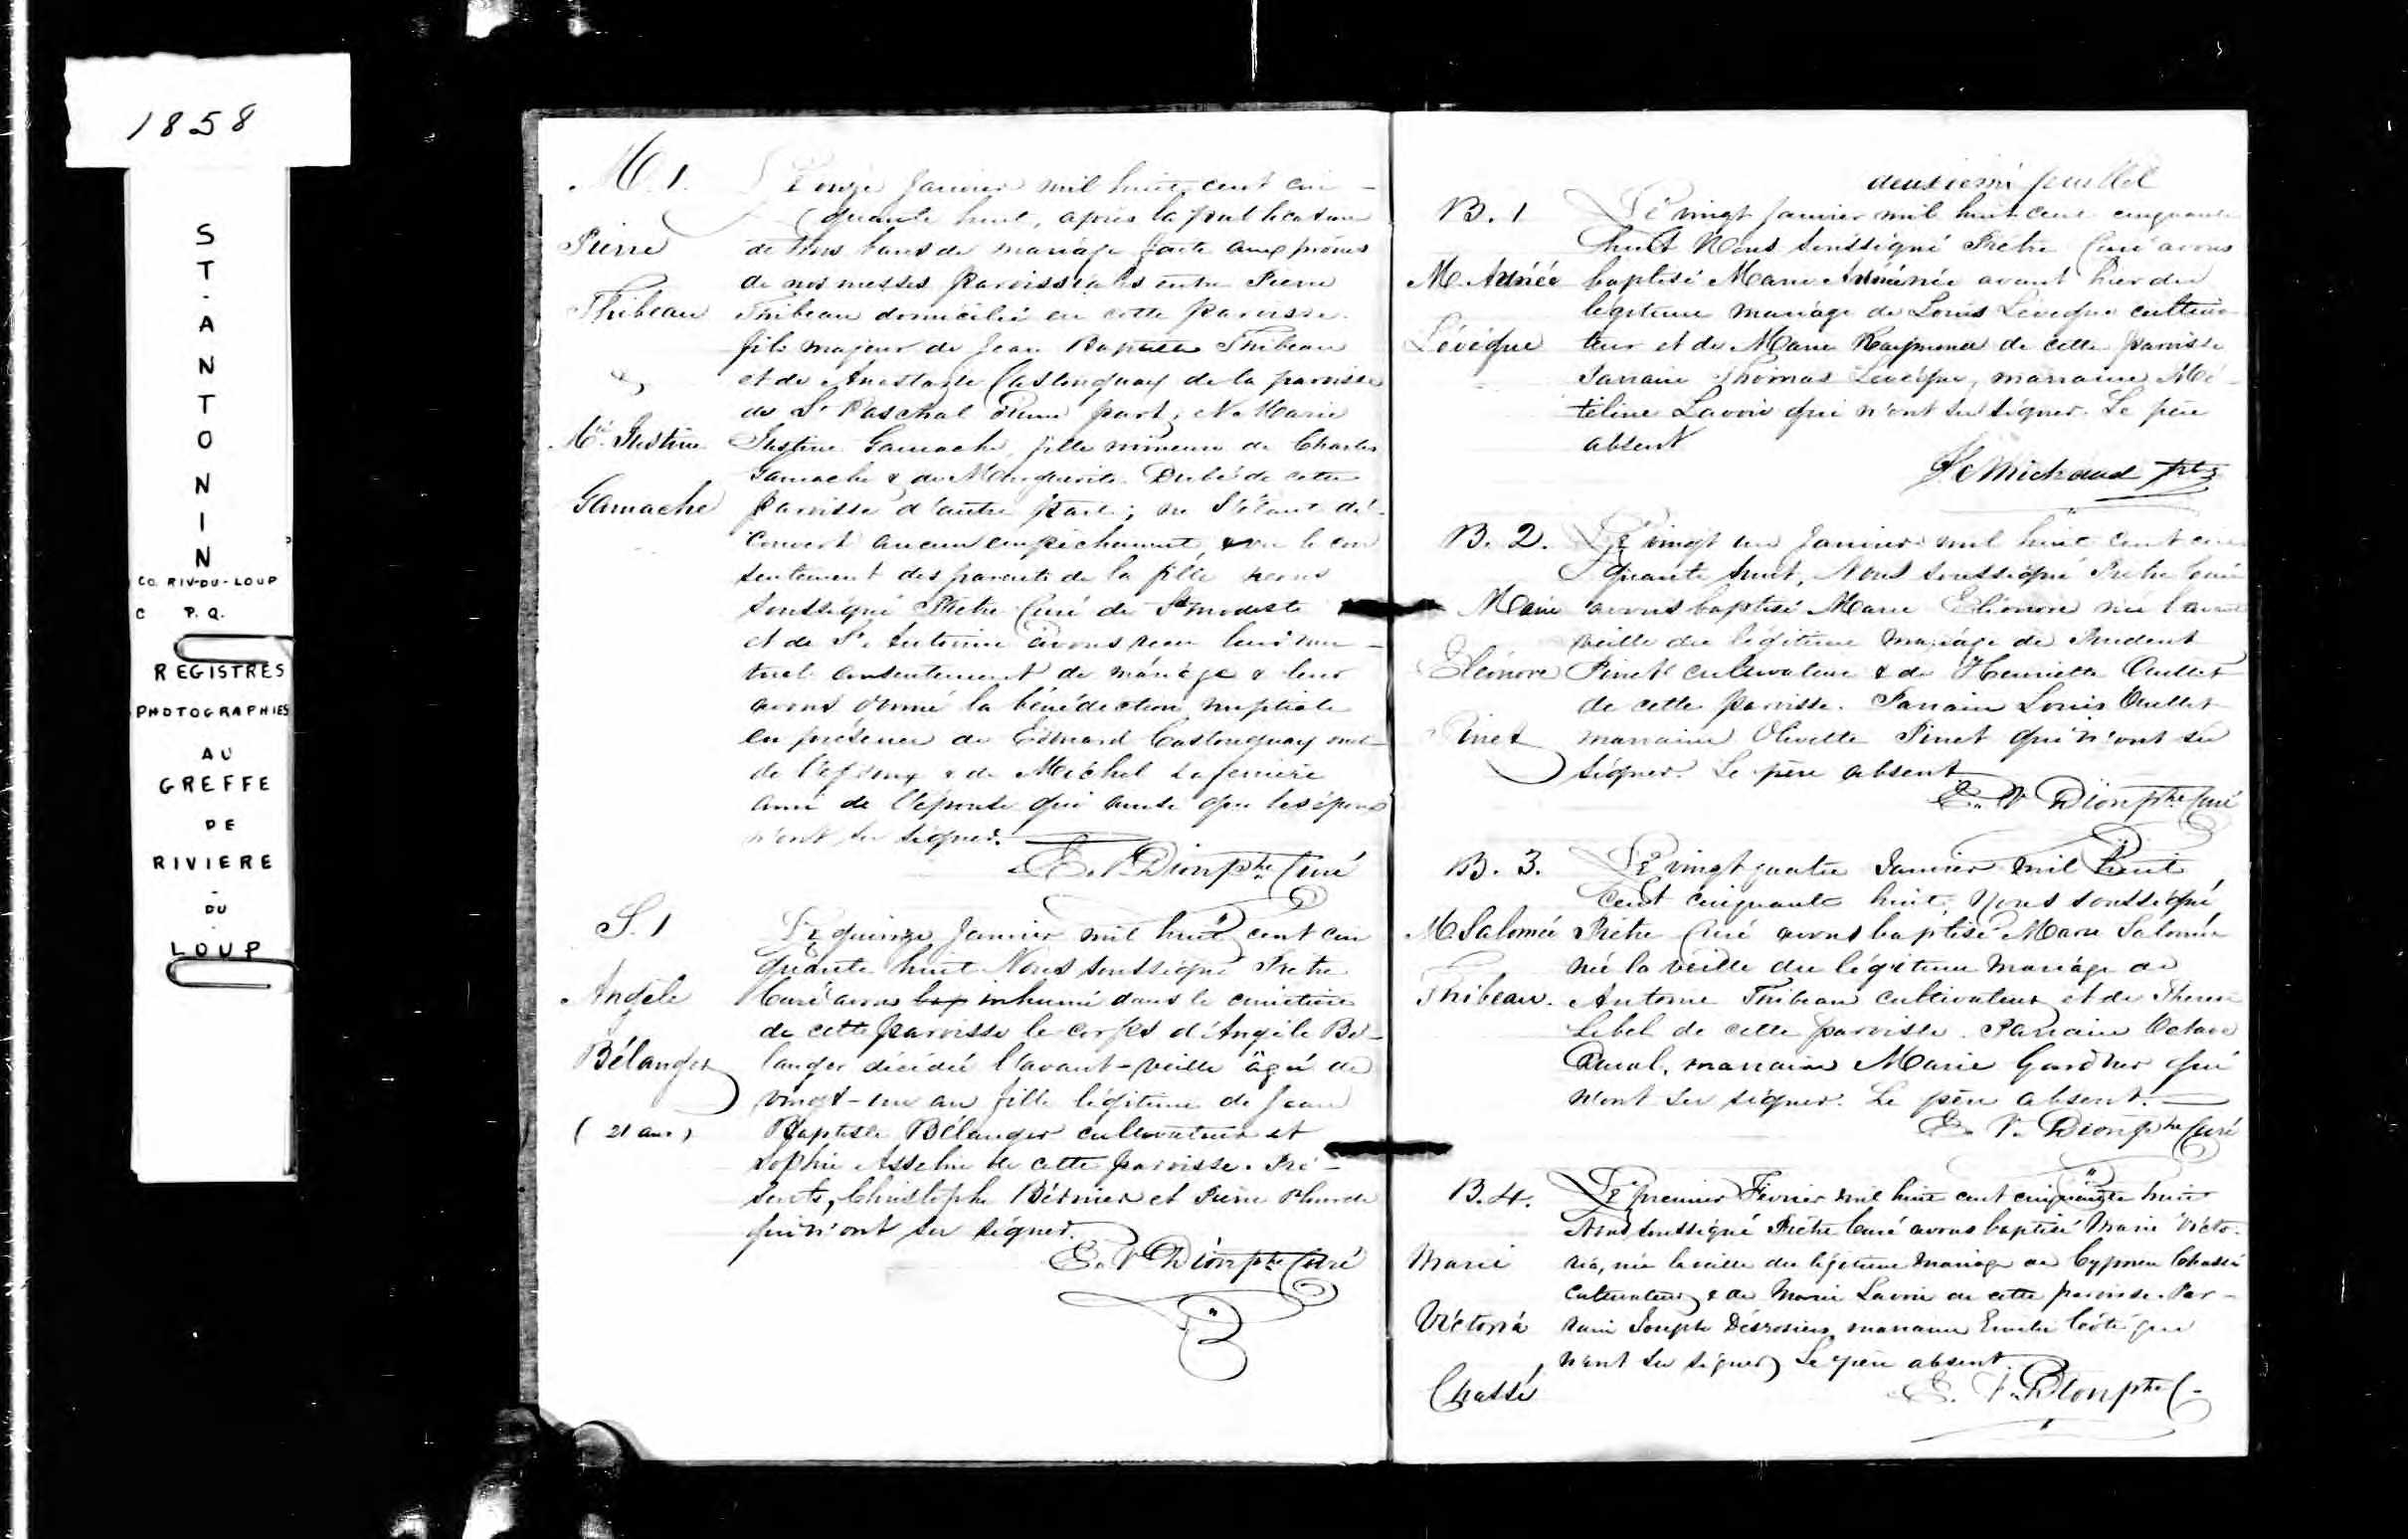 1858
ST. ANTONIN
CO. RIV-DU-LOUP
C P.Q.
REGISTRES
PHOTOGRAPHIES
AU
GREFFE
DE
RIVIERE
-
DU
-
LOUP
M. 1.
Pierre
Thibeau
&
Mie Justine
Gamache
Le onze Janvier mil huit cent cin-
quante huit, après la publication
de trois bans de mariage faite aux prônes
de nos messes paroissiales entre Pierre
Thibeau domicilié en cette paroisse
fils majeur de Jean Baptiste Thibeau
et de Anastasie Castonguay de la paroisse
de St Paschal d'une part; & Marie
Justine Gamache, fille mineure de Charles
Gamache & de Marguerite Dubé de cette
paroisse d'autre part; ne s'étant dé-
couvert aucun empêchement, & vu le con
sentement des parents de la fille nous
soussigné Prêtre Curé de St Modeste
et de St. Antonin avons reçu leur mu-
tuel consentement de mariage & leur
avons donné la bénédiction nuptiale
en présence de Edouard Castonguay
de l'époux & de Michel Laferrière
ami de l'épouse qui ainsi que les époux
n'ont su signer.
E. V. Dion ptre Curé
S. 1
Angèle
Bélanger
(21 ans)
Le quinze Janvier mil huit cent cin
quante huit Nous soussigné Prêtre
Curé avons bap inhumé dans le cimetière
de cette paroisse le corps d'Angèle Bé-
langer décédée l'avant-veille âgée de
vingt-un an fille légitime de Jean
Baptiste Bélanger cultivateur et
Sophie Asselin de cette paroisse. Pré-
sents, Christophe Bérnier et Pierre Plourde
qui n'ont su signer.
E. V. Dion ptre Curé
deuxième feuillet
B. 1
M. Adnéé
Lévéque
Le vingt Janvier mil huit cent cinquante
huit Nous soussigné Prêtre Curé avons
baptisé Marie née avant hier du
légitime mariage de Louis Lévéque cultiva
teur et de Marie Raymond de cette paroisse
Parrain Thomas Lévéque, marraine Mé-
teline Lavoie qui n'ont su signer. Le père
absent
Michaud ptre
B. 2.
Marie
Eléonore
Pinet
Le vingt un Janvier mil huit cent cin
quante huit, Nous soussigné Prêtre Curé
avons baptisé Marie Eléonore née l'avant
veille du légitime mariage de Prudent
Pinet cultivateur & de Henriette Ouellet
de cette paroisse. Parrain Louis Ouellet
marraine Olivette Pinet qui n'ont su
signer. Le père absent
E. V. Dion ptre Curé
B. 3.
M. Salomée
Thibeau.
Le vingt quatre Janvier mil huit
cent cinquante huit, Nous soussigné
Prêtre Curé avons baptisé Marie Salomée
née la veille du légitime mariage de
Antoine Thibeau cultivateur et de Therese
Lebel de cette paroisse. Parrain Octave
marraine Marie Gardner qui
n'ont su signer. Le père absent.
E. V. Dion ptre Curé
B. 4.
Marie
Victoria
Chassé
Le premier Février mil huit cent cinquante huit
Nous soussigné Prêtre Curé avons baptisé Marie Victo-
ria, née la veille du légitime mariage de Cyprien Chassé
cultivateur & de Marie Lavoie de cette paroisse. Par-
rain Joseph Désrosiers marraine Emelie Coté qui
n'ont su signer Le père absent.
E. V. Dion ptre C